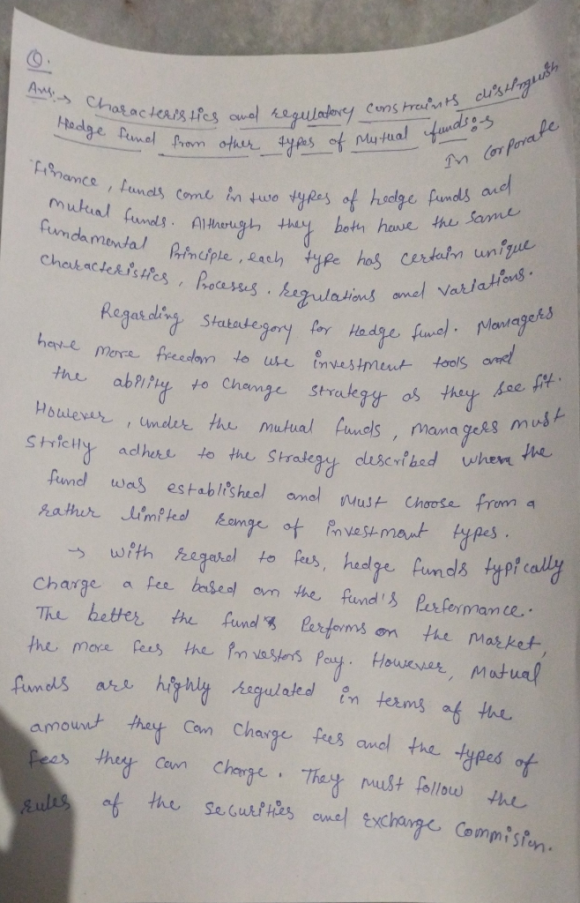 Q.
Ans:→ Characteristics and regulatory constraints distinguish
Hedge fund from other types of Mutual funds:→
In Corporate
Finance, funds come in two types of hedge funds and
mutual funds. Although they both have the same
fundamental Principle, each type has certain unique
characteristics, Processes. regulations and variations.
Regarding Starategory for Hedge fund. Managers
have more freedom to use investment tools and
the ability to change strategy as they see fit.
However, under the mutual funds, managers must
Strictly adhere to the Strategy described when the
fund was established and must choose from a
rather limited range of investmant types.
→ with regard to fees, hedge funds typically
charge a fee based on the fund's Performance.
The better the fund's Performs on the Market,
the more fees the investors pay. However, Mutual
funds are highly regulated in terms of the
amount they can charge fees and the types of
fees they can charge. They must follow the
rules of the securities and Exchange Commision.